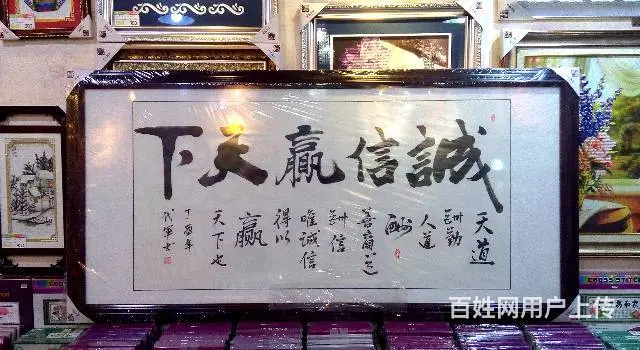 誠信贏天下
天道
酬勤
人道
酬
善商道
酬信
唯誠信
得以
贏
天下也
丁酉年
百姓网用户上传